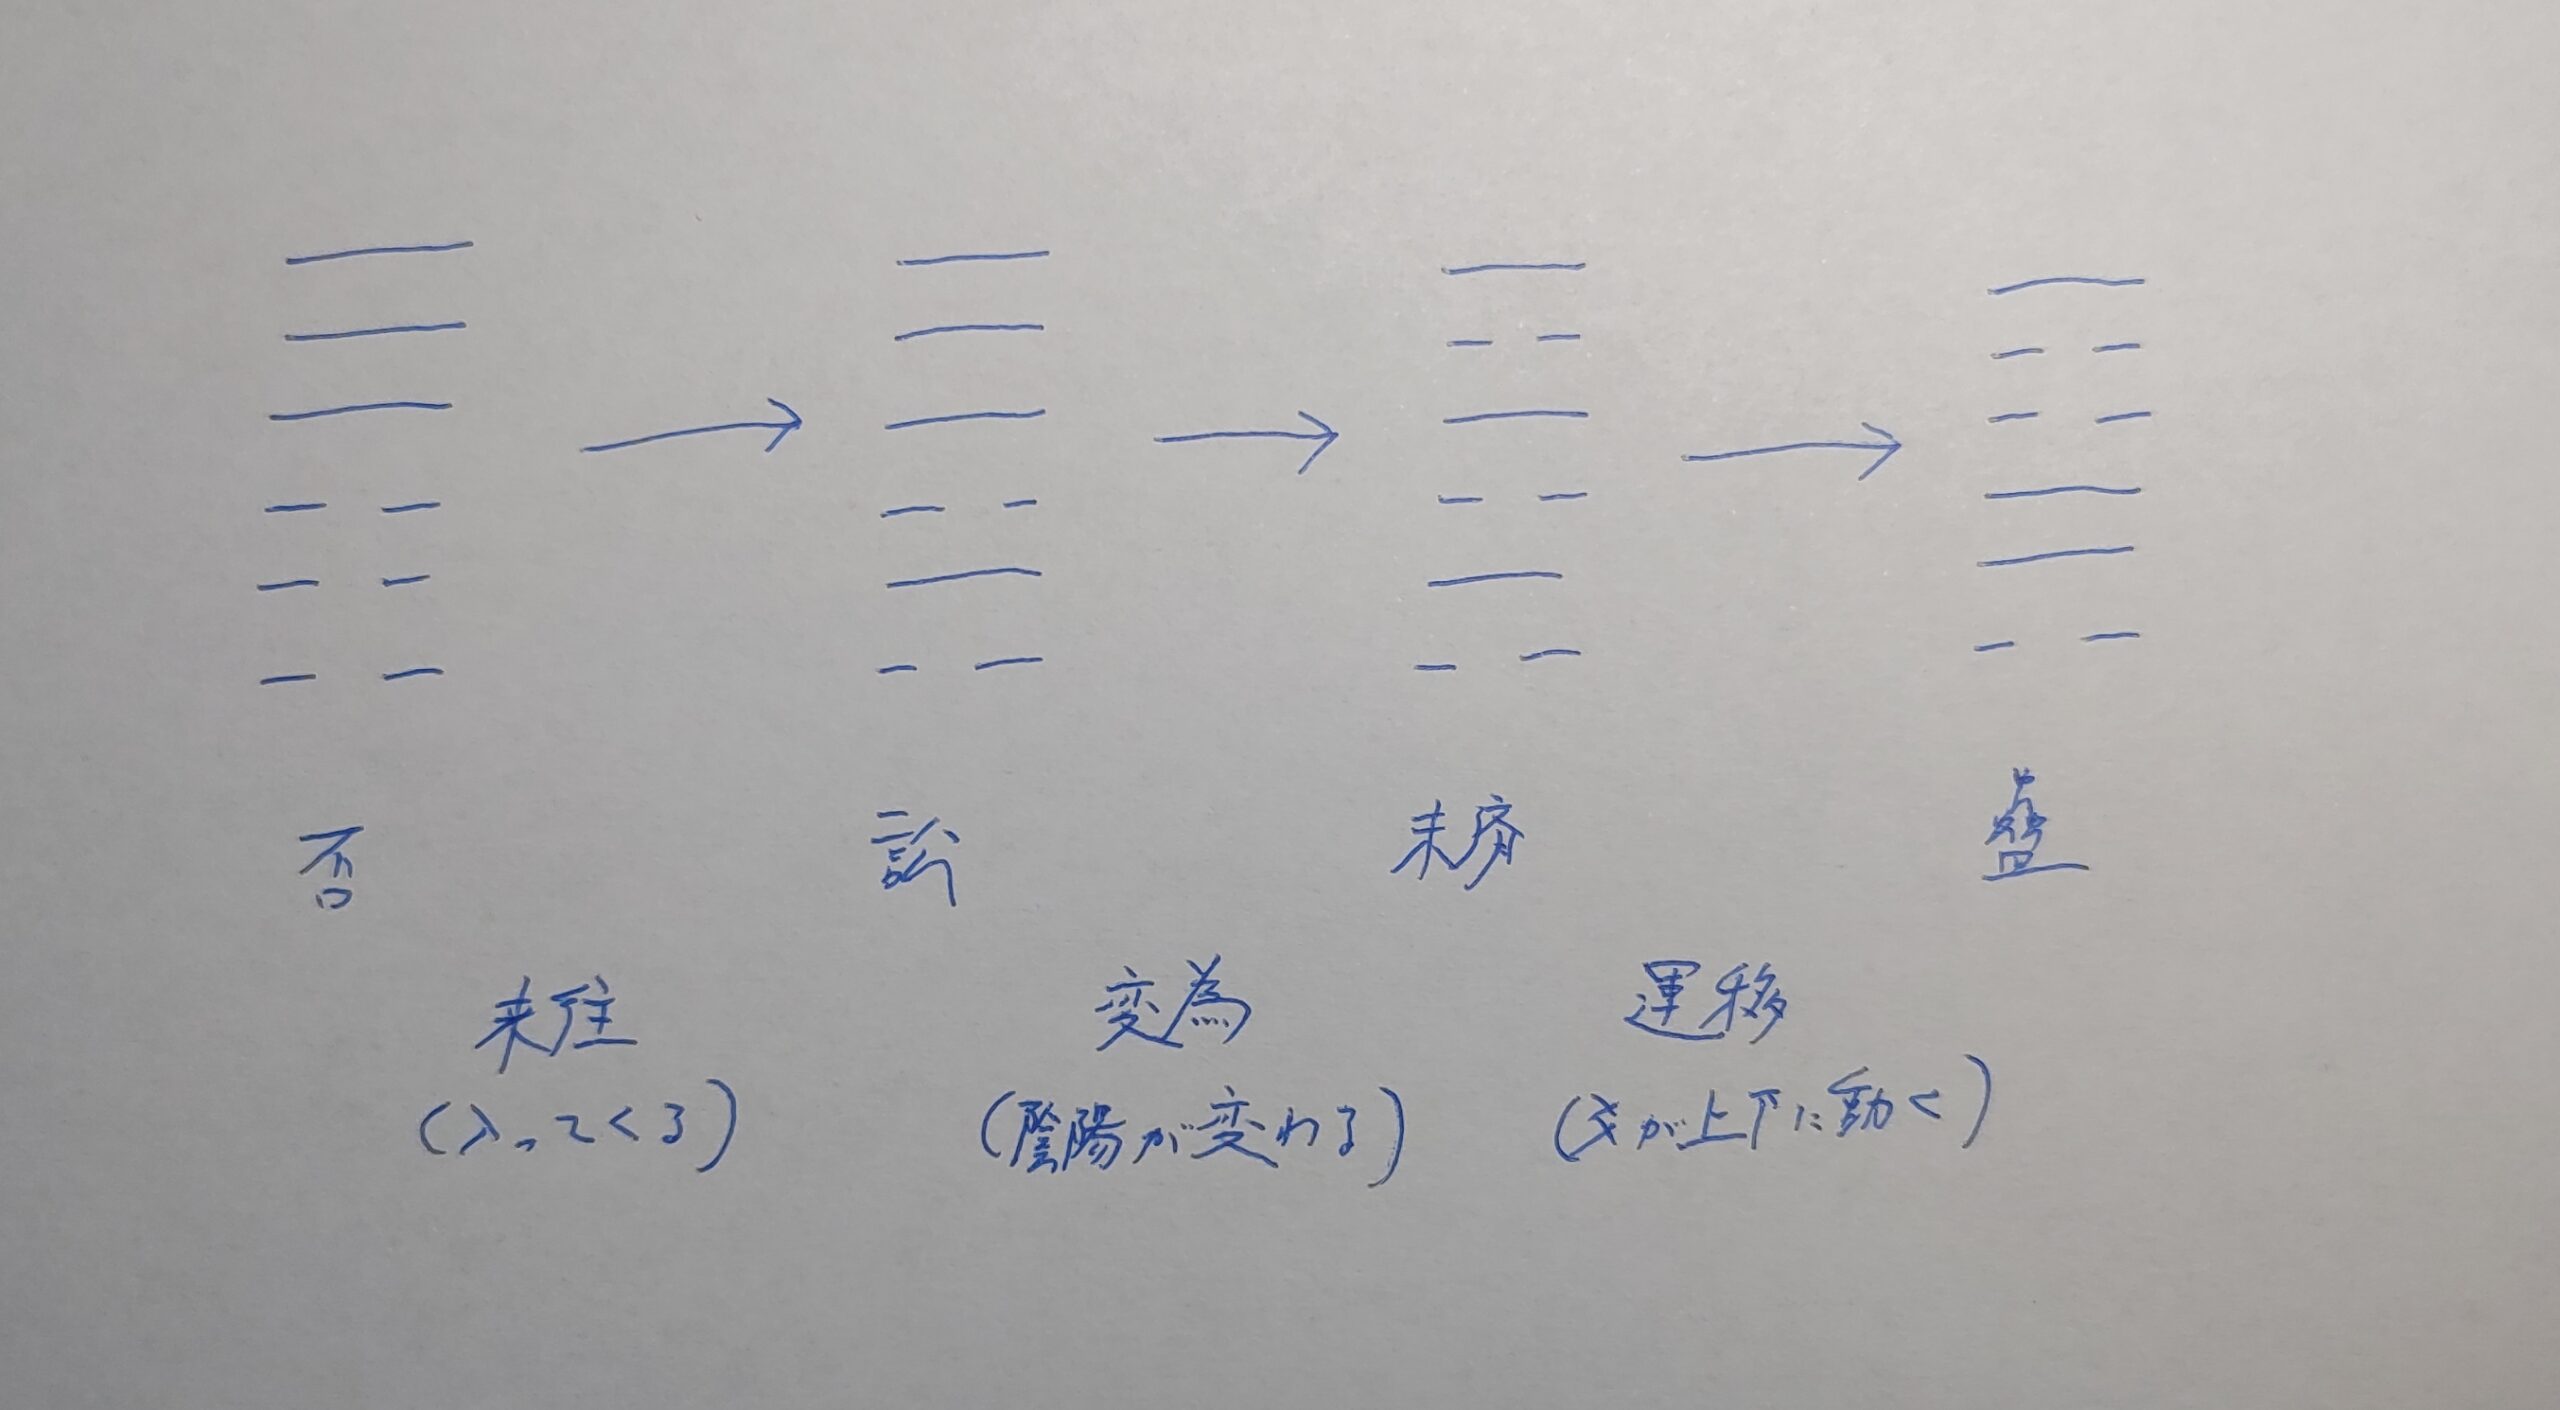 否 訟 未済 蠱
来往 変為 運移
(入ってくる) (陰陽が変わる) (爻が上下に動く)